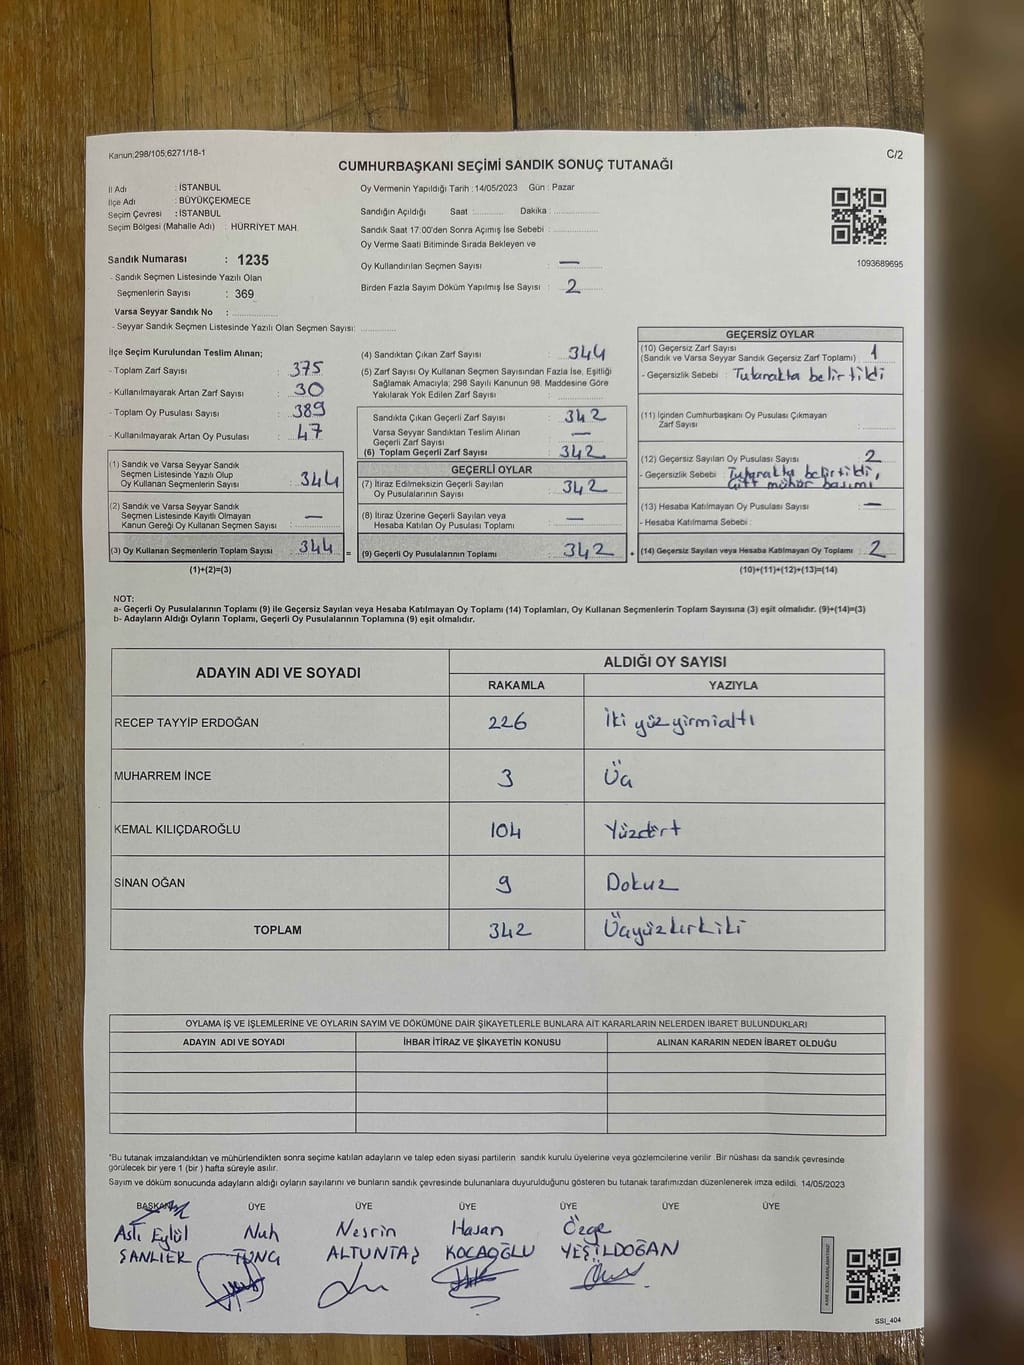 Kanun;298/105;6271/18-1
C/2
CUMHURBAŞKANI SEÇİMİ SANDIK SONUÇ TUTANAĞI
İl Adı : İSTANBUL
İlçe Adı : BÜYÜKÇEKMECE
Seçim Çevresi : İSTANBUL
Seçim Bölgesi (Mahalle Adı) : HÜRRİYET MAH.
Sandık Numarası : 1235
- Sandık Seçmen Listesinde Yazılı Olan
Seçmenlerin Sayısı : 369
Varsa Seyyar Sandık No : ..............
- Seyyar Sandık Seçmen Listesinde Yazılı Olan Seçmen Sayısı: ............
Oy Vermenin Yapıldığı Tarih : 14/05/2023 Gün : Pazar
Sandığın Açıldığı Saat :.......... Dakika : ..............
Sandık Saat 17:00'den Sonra Açımış İse Sebebi : ..............
Oy Verme Saati Bitiminde Sırada Bekleyen ve
Oy Kullandırılan Seçmen Sayısı : —
Birden Fazla Sayım Döküm Yapılmış İse Sayısı : 2
1093689695
İlçe Seçim Kurulundan Teslim Alınan;
- Toplam Zarf Sayısı : 375
- Kullanılmayarak Artan Zarf Sayısı : 30
- Toplam Oy Pusulası Sayısı : 389
- Kullanılmayarak Artan Oy Pusulası : 47
(1) Sandık ve Varsa Seyyar Sandık
Seçmen Listesinde Yazılı Olup
Oy Kullanan Seçmenlerin Sayısı : 344
(2) Sandık ve Varsa Seyyar Sandık
Seçmen Listesinde Kayıtlı Olmayan
Kanun Gereği Oy Kullanan Seçmen Sayısı : —
(3) Oy Kullanan Seçmenlerin Toplam Sayısı : 344 =
(1)+(2)=(3)
(4) Sandıktan Çıkan Zarf Sayısı : 344
(5) Zarf Sayısı Oy Kullanan Seçmen Sayısından Fazla İse, Eşitliği
Sağlamak Amacıyla; 298 Sayılı Kanunun 98. Maddesine Göre
Yakılarak Yok Edilen Zarf Sayısı : ..............
Sandıkta Çıkan Geçerli Zarf Sayısı : 342
Varsa Seyyar Sandıktan Teslim Alınan
Geçerli Zarf Sayısı : —
(6) Toplam Geçerli Zarf Sayısı : 342
GEÇERLİ OYLAR
(7) İtiraz Edilmeksizin Geçerli Sayılan
Oy Pusulalarının Sayısı : 342
(8) İtiraz Üzerine Geçerli Sayılan veya
Hesaba Katılan Oy Pusulası Toplamı : —
(9) Geçerli Oy Pusulalarının Toplamı : 342
GEÇERSİZ OYLAR
(10) Geçersiz Zarf Sayısı
(Sandık ve Varsa Seyyar Sandık Geçersiz Zarf Toplamı) : 1
- Geçersizlik Sebebi : Tutanakta belirtildi
(11) İçinden Cumhurbaşkanı Oy Pusulası Çıkmayan
Zarf Sayısı : ..........
(12) Geçersiz Sayılan Oy Pusulası Sayısı : 2
- Geçersizlik Sebebi : Tutanakta belirtildi,
Çift mühür basımı
(13) Hesaba Katılmayan Oy Pusulası Sayısı : —
- Hesaba Katılmama Sebebi :
(14) Geçersiz Sayılan veya Hesaba Katılmayan Oy Toplamı : 2
(10)+(11)+(12)+(13)=(14)
NOT:
a- Geçerli Oy Pusulalarının Toplamı (9) ile Geçersiz Sayılan veya Hesaba Katılmayan Oy Toplamı (14) Toplamları, Oy Kullanan Seçmenlerin Toplam Sayısına (3) eşit olmalıdır. (9)+(14)=(3)
b- Adayların Aldığı Oyların Toplamı, Geçerli Oy Pusulalarının Toplamına (9) eşit olmalıdır.
ADAYIN ADI VE SOYADI ALDIĞI OY SAYISI
RAKAMLA YAZIYLA
RECEP TAYYİP ERDOĞAN 226 İki yüz yirmialtı
MUHARREM İNCE 3 Üç
KEMAL KILIÇDAROĞLU 104 Yüzdört
SİNAN OĞAN 9 Dokuz
TOPLAM 342 Üçyüzkırkiki
OYLAMA İŞ VE İŞLEMLERİNE VE OYLARIN SAYIM VE DÖKÜMÜNE DAİR ŞİKAYETLERLE BUNLARA AİT KARARLARIN NELERDEN İBARET BULUNDUKLARI
ADAYIN ADI VE SOYADI İHBAR İTİRAZ VE ŞİKAYETİN KONUSU ALINAN KARARIN NEDEN İBARET OLDUĞU
*Bu tutanak imzalandıktan ve mühürlendikten sonra seçime katılan adayların ve talep eden siyasi partilerin sandık kurulu üyelerine veya gözlemcilerine verilir. Bir nüshası da sandık çevresinde
görülecek bir yere 1 (bir ) hafta süreyle asılır.
Sayım ve döküm sonucunda adayların aldığı oyların sayılarını ve bunların sandık çevresinde bulunanlara duyurulduğunu gösteren bu tutanak tarafımızdan düzenlenerek imza edildi. 14/05/2023
BAŞKAN ÜYE ÜYE ÜYE ÜYE ÜYE ÜYE
Aslı Eylül Nuh Nesrin Hasan Özge
ŞANLIER TUNÇ ALTUNTAŞ KOCAOĞLU YEŞİLDOĞAN
SSI_404